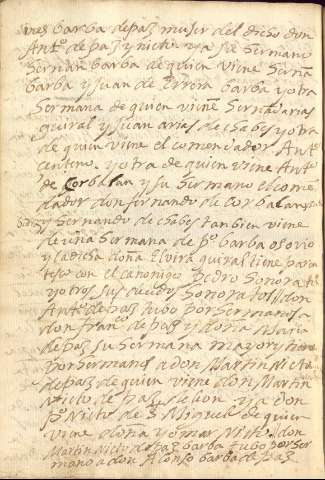 ines barba de paz muger del dicho don
Antº de paz y nieto era su hermano
hernan barba de quien viene hernã
barba y Juan de herrera barba y otra
hermana de quien vine hernãd arias
guiral y Juan arias de chabes y otra
de quien viene el comendador Antº
centeno y otra de quien viene Antº
de Corbalan y su hermano el come
dador don fernando de Corbalan
y hernando de chabes tanbien viene
de una hermana de pº barba osorio
y la dicha doña Elvira guiral tiene paren
tesco con el canonigo Pedro Honorato
y otros sus deudos Honoratos don
Antº de paz tubo por hermanos a
don franco de paz y doña Maria
de paz su hermana mayor y tiene
por hermanos a don Martin Nieto
de paz de quien viene don Martin
Nieto de paz y a don
pº Nieto de S Miguel de quien
viene doña Nieto don
Martin Nieto de paz barba tubo por her
mano a don Alonso barba de paz